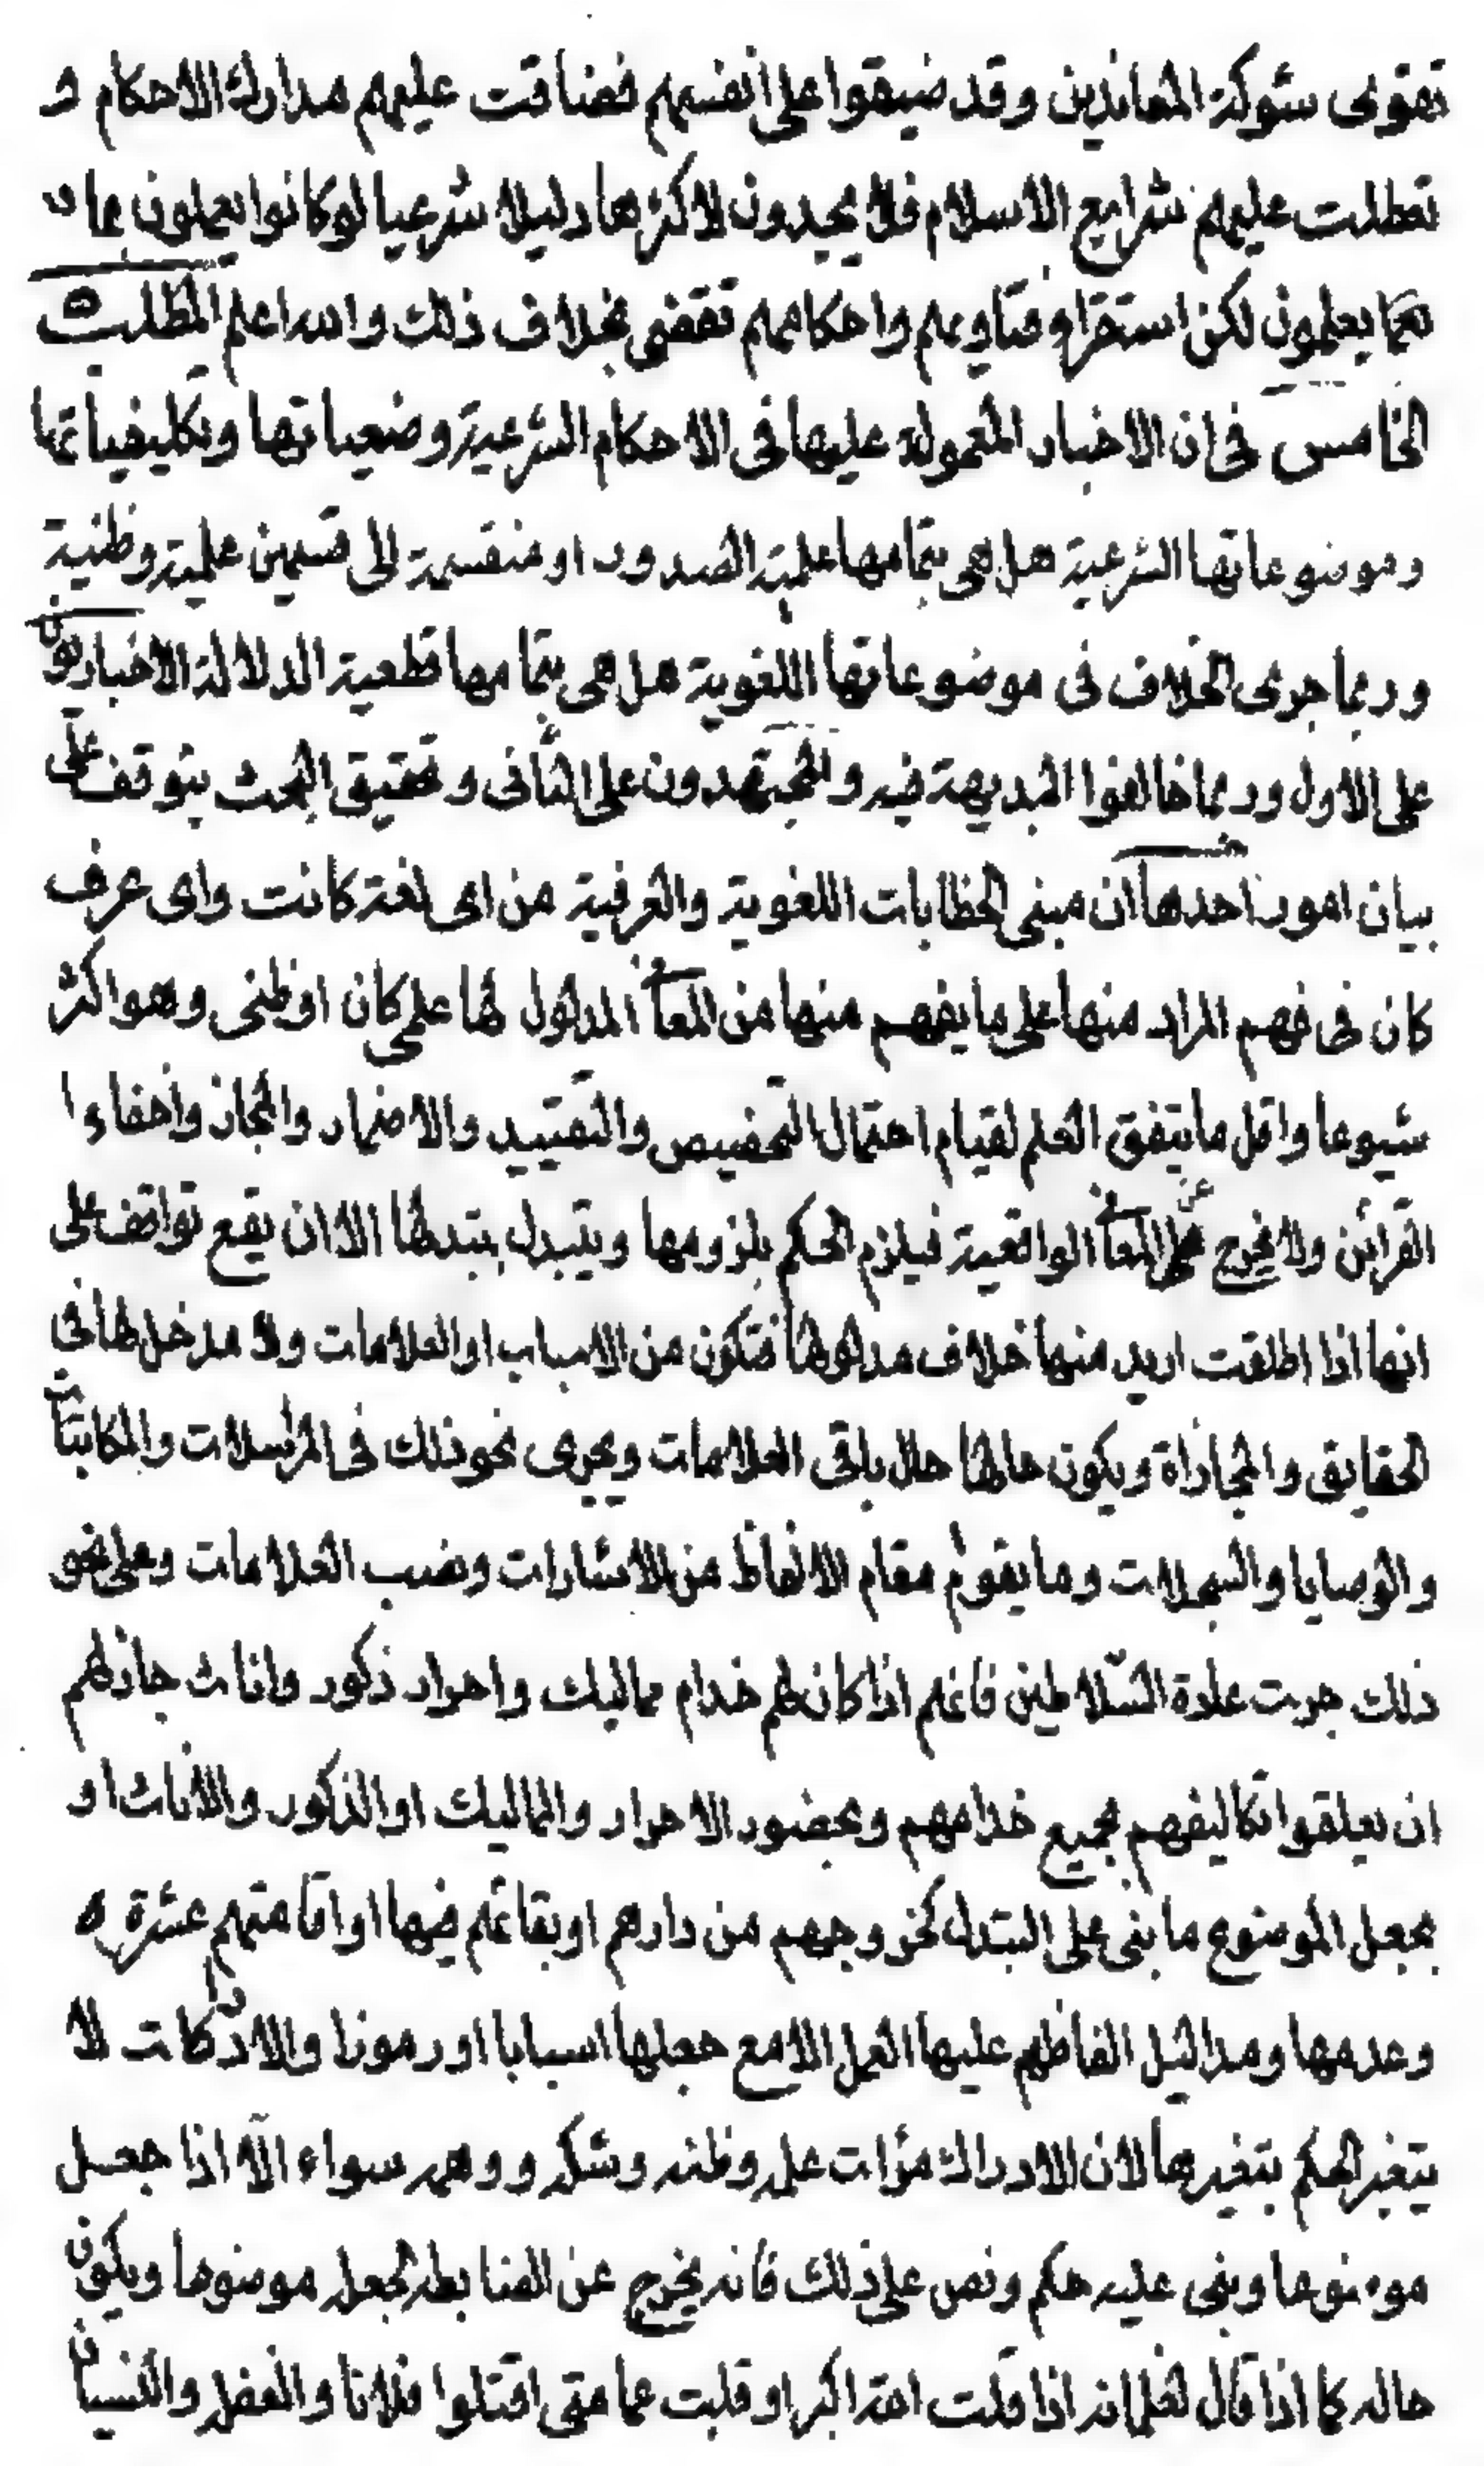 تقوى شوكة المعاندين وقد ضيقوا على انفسهم فضاقت عليهم مدارك الاحكام و
تعطلت عليهم شرايع الاسلام فلا يجدون لاكثرها دليلا شرعيا لوكانوا يعملون بما
كما يعلمون لكن استقراء فتاويهم واحكامهم تقضى بخلاف ذلك والله اعلم المطلب
الخامس فى ان الاخبار المعمولة عليها فى الاحكام الشرعية وضعياتها وتكليفياتها
وموضوعاتها الشرعية هل هى بتمامها علمية الصدور او منقسمة الى قسمين علمية وظنية
وربما جرى الخلاف فى موضوعاتها اللغوية هل هى بتمامها قطعية الدلالة الاخباريون
على الاول وربما خالفوا البديهة فيه والمجتهدون على الثانى وتحقيق البحث يتوقف على
بيان امور احدها ان مبنى الخطابات اللغوية والعرفية من اى لغة كانت واى عرف
كان فى فهم المراد منها على ما يفهم منها من المعانى المدلول لها علمى كان او ظنى وهو اكثر
شيوعا واقل ما يتفق العلم لقيام احتمال التخصيص والتقييد والاضمار والمجاز واخفاء
القرائن ولا يخرج عن المعانى الواقعية فيلزم الحكم بلزومها ويتبدل بتبدلها الا ان يقع تواقف على
انها اذا اطلقت اريد منها خلاف مدلولها فتكون من الاسباب او العلامات ولا مدخل لها فى
الحقايق والمجازاة ويكون حالها حال باقى العلامات ويجرى نحو ذلك فى المراسلات والمكاتبات
والوصايا والسجلات وما يقوم مقام الالفاظ من الاشارات ونصب العلامات وعلى نحو
ذلك جرت عادة السلاطين فانهم اذا كان لهم خدام مماليك واحرار ذكور واناث جاز لهم
ان يعلقوا تكاليفهم بجميع خدامهم وبحضور الاحرار والمماليك او الذكور والاناث او
بجعل الموضوع ما بنى على التبدل كخروجهم من دارهم او بقائهم فيها او اقامتهم عشرة
وعدمها ومداليل الفاظهم عليها العمل الا مع جعلها اسبابا او رموزا والادراكات لا
يتغير الحكم بتغيرها لان الادراك مرٰات علمه وظنه وشكه ووهمه سواء الا اذا جعل
موضوعا وبنى عليه حكم ونص على ذلك فانه يخرج عن الضابطه لجعله موضوعا ويكون
حاله كما اذا قال لغلمانه اذا قلت الله اكبر او قلبت عمامتى اقتلوا فلانا والغفلة والنسيان